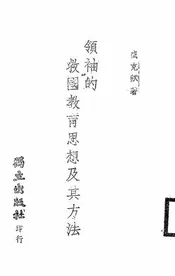 著
領袖的
救國教育思想及其方法
獨立出版社
印行